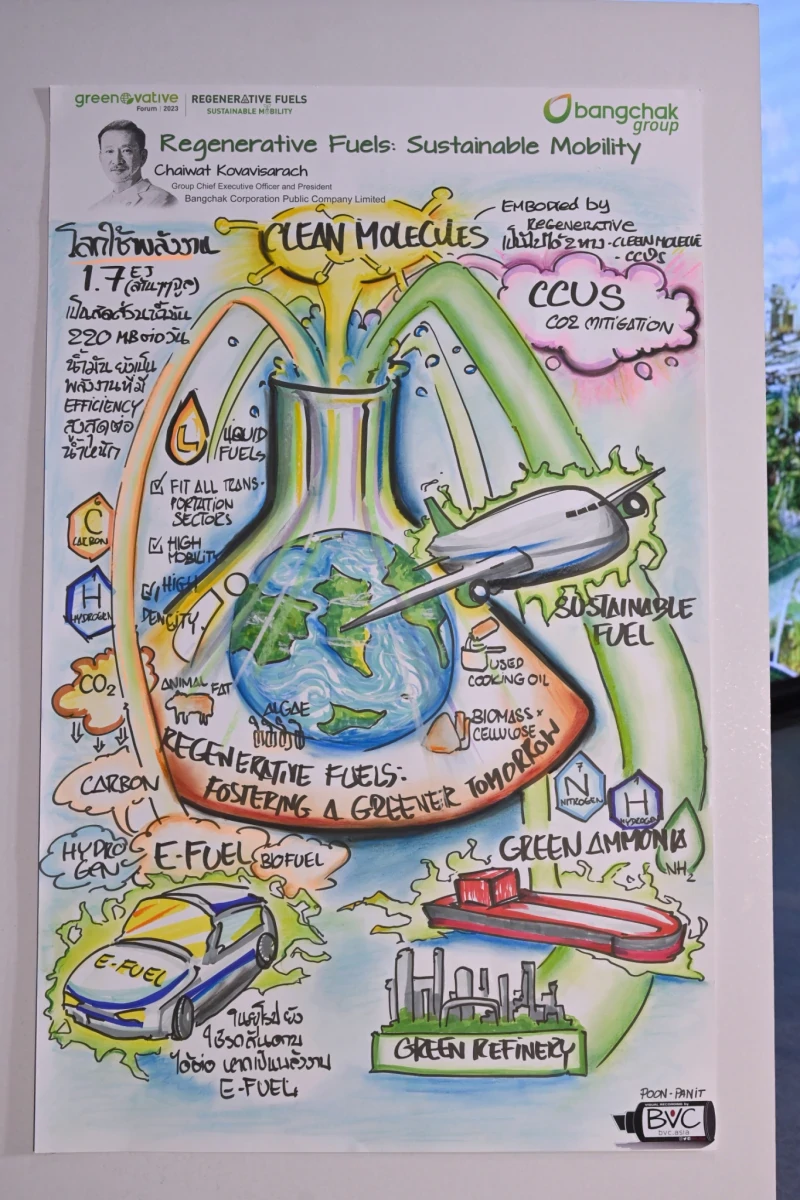 greenovative
Forum | 2023
REGENERATIVE FUELS
SUSTAINABLE MOBILITY
bangchak
group
Regenerative Fuels: Sustainable Mobility
Chaiwat Kovavisarach
Group Chief Executive Officer and President
Bangchak Corporation Public Company Limited
CLEAN MOLECULES
EMBODIED by
REGENERATIVE
เป็นไปได้ 2 ทาง - CLEEN MOLECULE
- CCUS
CCUS
CO2 MITIGATION
โลกใช้พลังงาน
1.7 EJ
(ล้านๆๆจูล)
220 MB ต่อวัน
น้ำมัน ยังเป็น
พลังงานที่มี
EFFICIENCY
สูงสุดต่อ
น้ำหนัก
L
LIQUID
FUELS
FIT ALL TRANS-
PORTATION
SECTORS
HIGH
MOBILITY
HIGH
DENSITY
C
CARBON
H
HYDROGEN
CO2
CARBON
HYDRO
GEN
E-FUEL
BIOFUEL
SUSTAINABLE
FUEL
USED
COOKING OIL
ANIMAL FAT
ALGAE
BIOMASS
CELLULOSE
REGENERATIVE FUELS:
FOSTERING A GREENER TOMORROW
7
N
NITROGEN
H
HYDROGEN
GREEN AMMONIA
NH2
E-FUEL
ในยุโรป ยัง
ใช้รถสันดาป
ได้ต่อ หากเป็นพลังงาน
E-FUEL
GREEN REFINERY
POON-PANIT
VISUAL RECORDED BY
BVC
bvc.asia